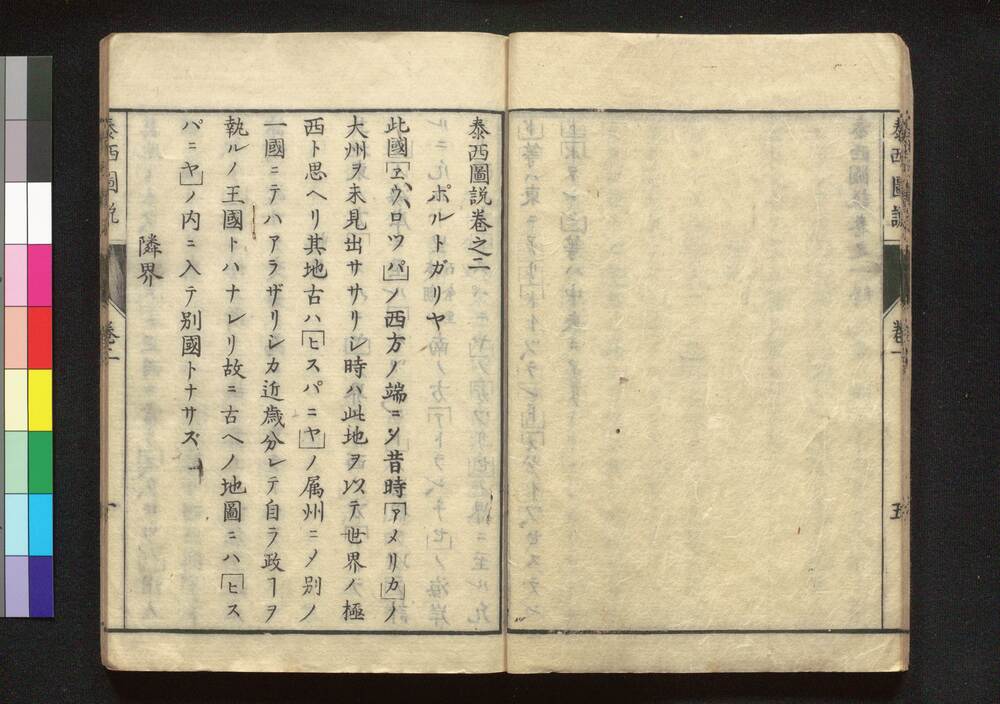 泰西圖説
卷一
五
泰西圖説卷之二
ポルトガリヤ
此國「ヱウロツパ」ノ西方ノ端ニシ昔時「アメリカ」ノ
大州ヲ未見出ササリシ時ハ此地ヲ以テ世界ノ極
西ト思ヘリ其地古ハ「ヒスパニヤ」ノ属州ニメ別ノ
一國ニテハアラザリシカ近歳分レテ自ラ政ヿヲ
執ルノ王國トハナレリ故ニ古ヘノ地圖ニハ「ヒス
パニヤ」ノ内ニ入テ別國トナサズ
隣界
泰西圖説
卷二